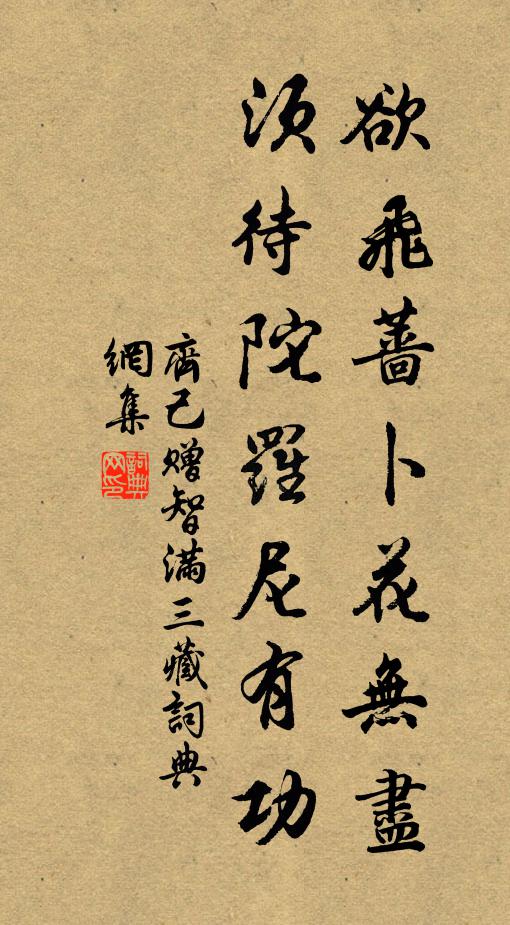 欲飛薔卜花無盡
須待陀羅尼有功
齊己贈智滿三藏詞典
網集
詞典網印